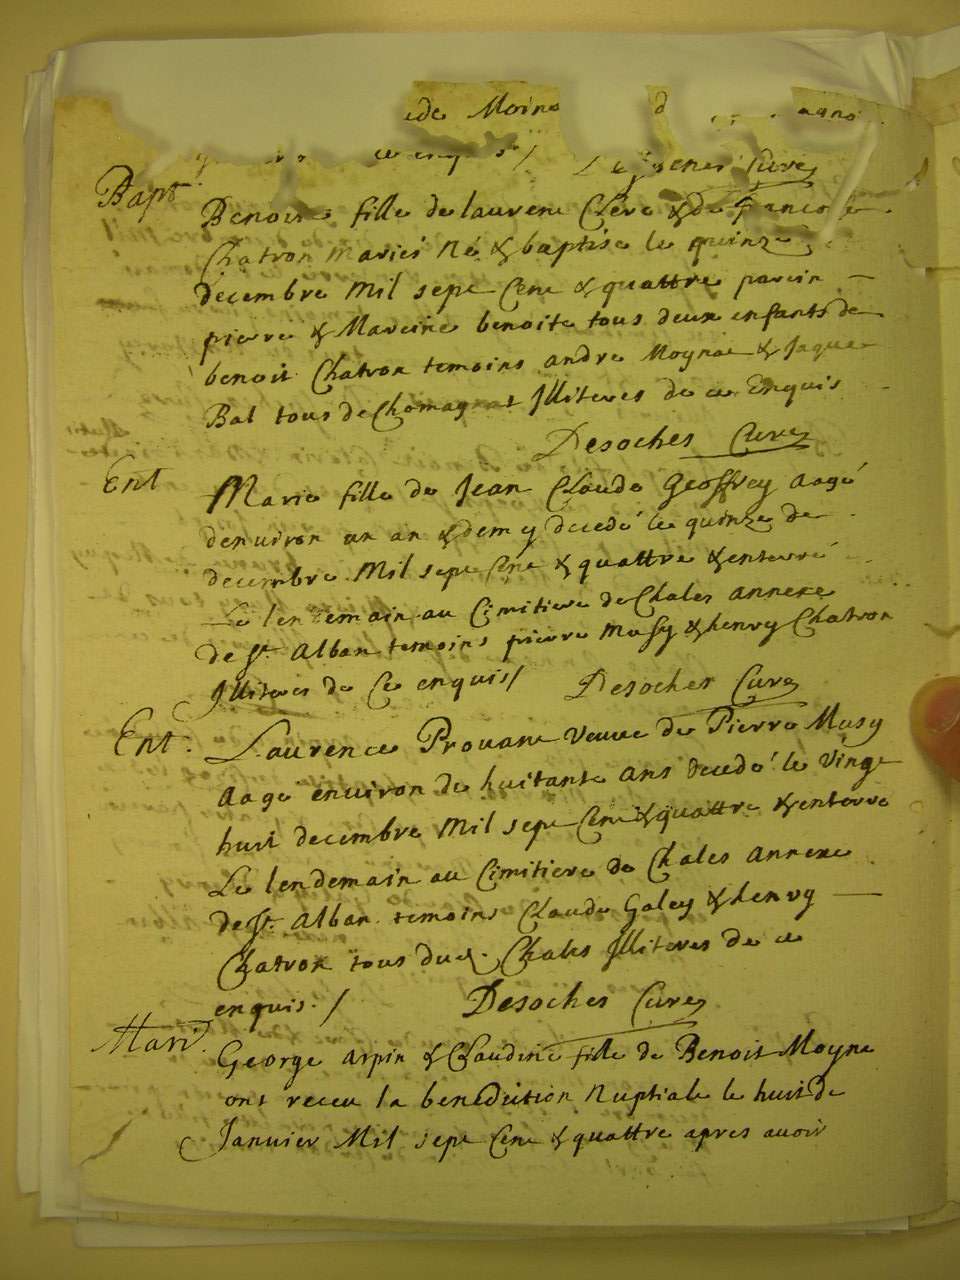 de Moine
ce enquis / Desoches Curé
Bapt.
Benoite fille de laurent Clere & de francoise
Chatron mariés Né & baptise le quinze
decembre Mil sept Cent & quattre parein
pierre & Mareine benoite tous deux enfants de
benoit Chatron temoins andre Moynat & Jaque
Bal tous de Chomagnat Illiteres de ce Enquis
Desoches Curé
Ent
Marie fille de Jean Claude Geoffrey aagé
denuiron un an & demy decedé le quinze de
decembre Mil sept Cent & quattre & enterré
Le lendemain au Cimitiere de Chales annexe
de St. Alban temoins pierre Musy & henry Chatron
Illiteres de Ce enquis / Desoches Curé
Ent.
Laurence Prouant Veuue de Pierre Musy
aagé enuiron de huitante ans decedé le Vingt
huit decembre Mil sept Cent & quattre & enterré
Le lendemain au Cimitiere de Chales annexe
de St. Alban temoins Claude Galey & henry
Chatron tous dud. Chales Illiteres de ce
enquis. / Desoches Curé
Mari.
George arpin & Claudine fille de Benoit Moyne
ont receu la benediction Nuptiale le huit de
Janvier Mil sept Cent & quattre apres auoir